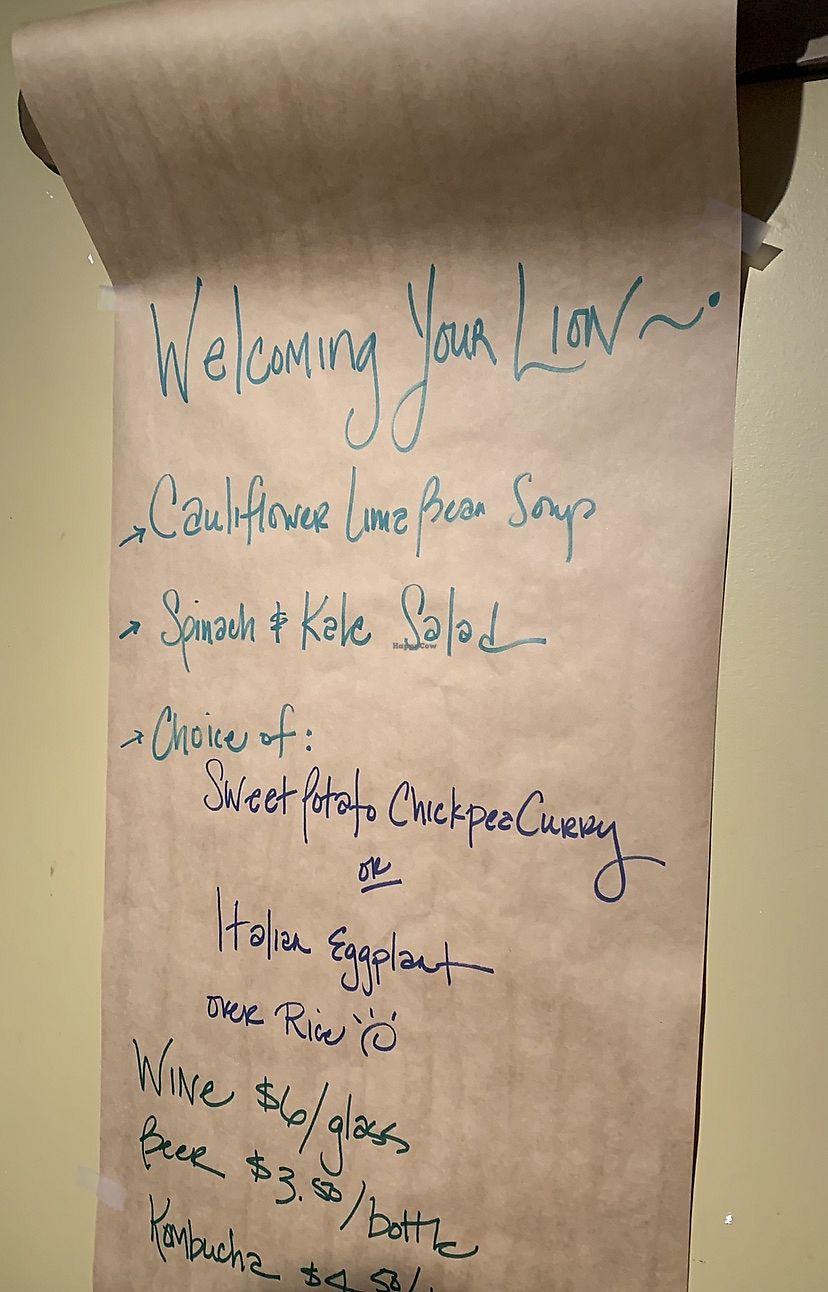 Welcoming Your Lion ~•
→ Cauliflower Lima Bean Soup
→ Spinach & Kale Salad
HappyCow
→ Choice of:
Sweet Potato Chickpea Curry
or
Italian Eggplant
over Rice
Wine $6/glass
Beer $3.50/bottle
Kombucha $4.50/